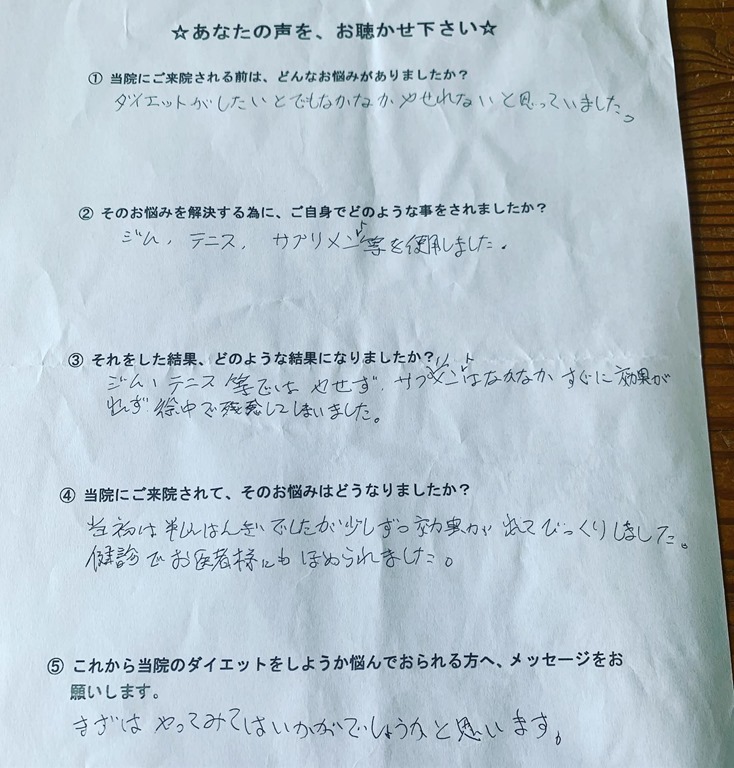 ☆あなたの声を、お聴かせ下さい☆
① 当院にご来院される前は、どんなお悩みがありましたか？
ダイエットがしたいとでもなかなかやせれないと思っていました。
② そのお悩みを解決する為に、ご自身でどのような事をされましたか？
ジム、テニス、サプリメント等を使用しました。
③ それをした結果、どのような結果になりましたか？
ジム、テニス等ではやせず、サプリメントはなかなかすぐに効果が
れず途中で残念してしまいました。
④ 当院にご来院されて、そのお悩みはどうなりましたか？
当初は半しんはんぎでしたが少しずつ効果が出てびっくりしました。
健診でお医者様にもほめられました。
⑤ これから当院のダイエットをしようか悩んでおられる方へ、メッセージをお
願いします。
まずはやってみてはいかがでしょうかと思います。